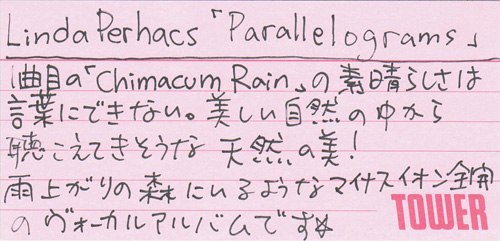 Linda Perhacs「Parallelograms」
1曲目の「Chimacum Rain」の素晴らしさは
言葉にできない。美しい自然の中から
聴こえてきそうな天然の美!
雨上がりの森にいるようなマイナスイオン全開
のヴォーカルアルバムです☆
TOWER